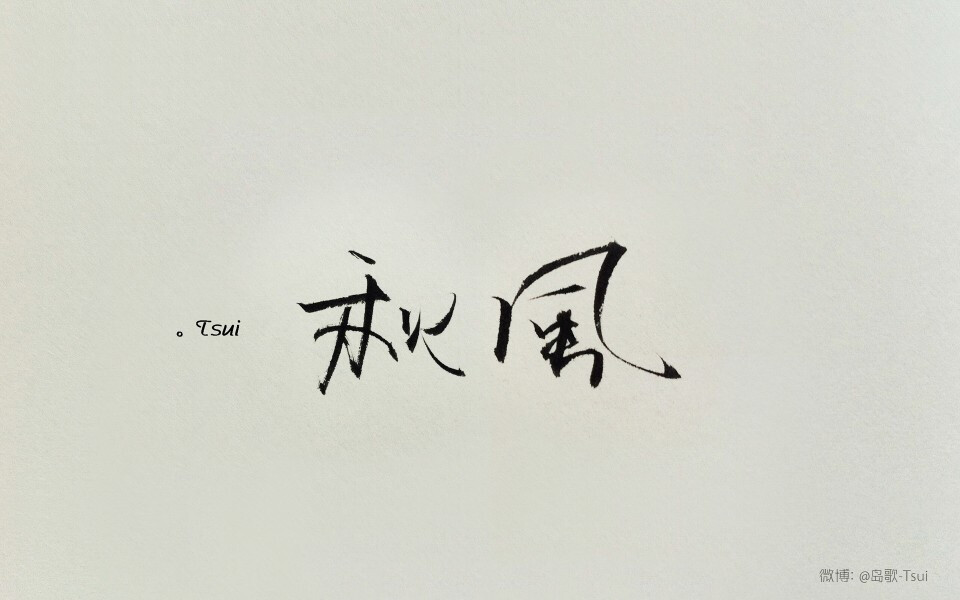 秋風
。Tsui
微博: @岛歌-Tsui